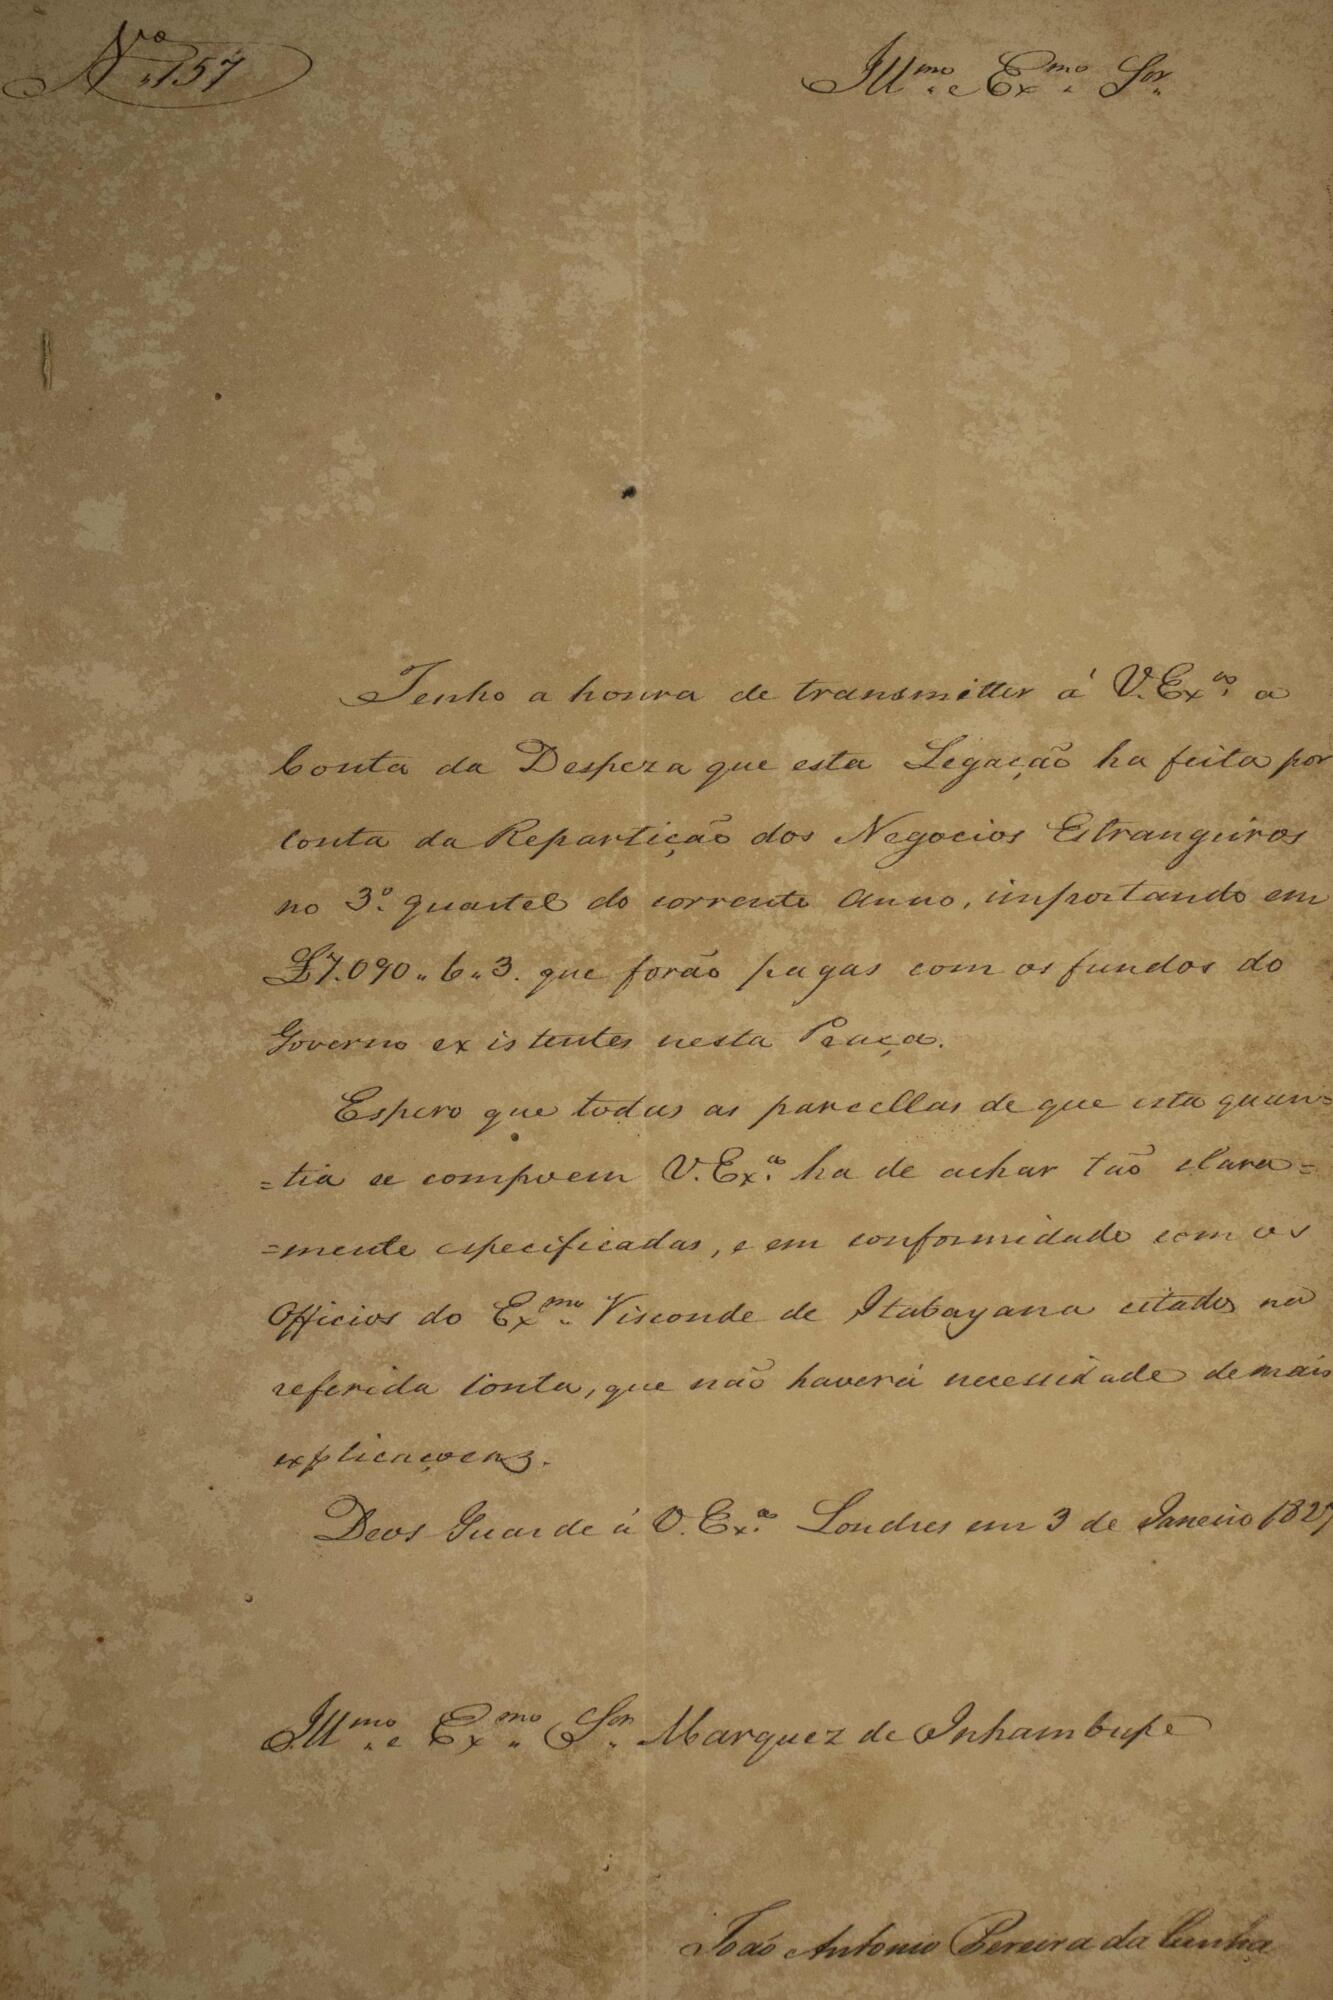 Nº 157
Illmo. e Exmo. Sor.
Tenho a honra de transmitter á V. Exa. a
Conta da Despeza que esta Legação ha feita por
conta da Repartição dos Negocios Estrangeiros
no 3º. quartel do corrente anno, importando em
£7.090. 6. 3. que forão pagas com os fundos do
Governo existentes nesta Praça.
Espero que todas as parcellas de que esta quan=
=tia se compoem V. Exa. ha de achar tão clara=
=mente especificadas, e em conformidade com os
Officios do Exmo. Visconde de Itabayana citados na
referida Conta, que não haverá necessidade de mais
explicaçoens.
Deos Guarde á V. Exa. Londres em 3 de Janeiro 1827
Illmo. e Exmo. Sor. Marquez de Inhambupe
João Antonio Pereira da Cunha